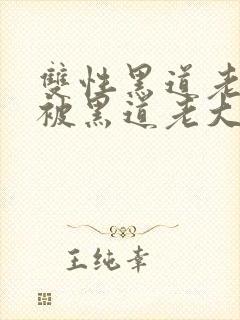 雙性黑道老
被黑道老大
王纯幸